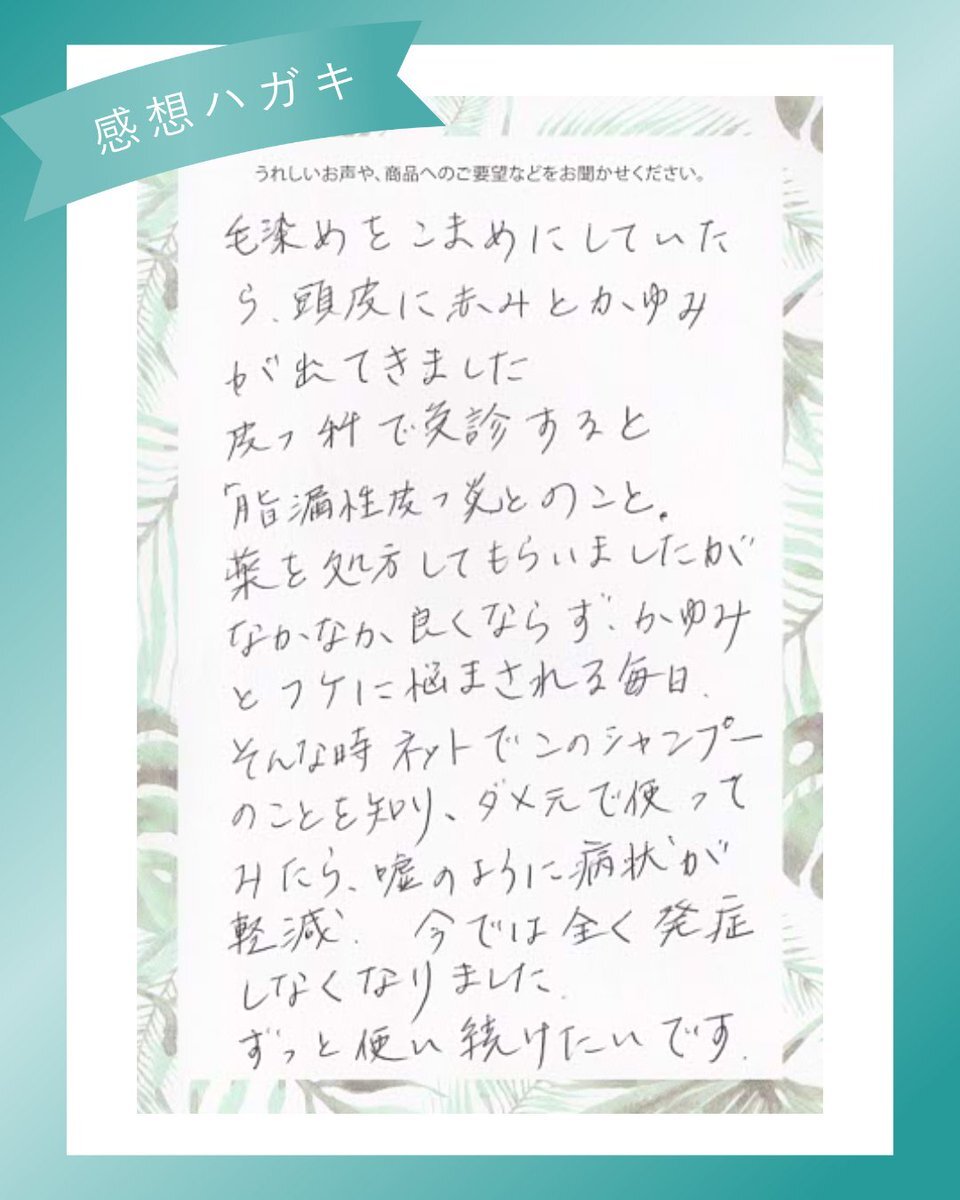 感想ハガキ
うれしいお声や、商品へのご要望などをお聞かせください。
毛染めをこまめにしていた
ら、頭皮に赤みとかゆみ
が出てきました
皮フ科で受診すると
「脂漏性皮フ炎」とのこと。
薬を処方してもらいましたが
なかなか良くならず、かゆみ
とフケに悩まされる毎日、
そんな時ネットでこのシャンプー
のことを知り、ダメ元で使って
みたら、嘘のように病状が
軽減、今では全く発症
しなくなりました、
ずっと使い続けたいです、